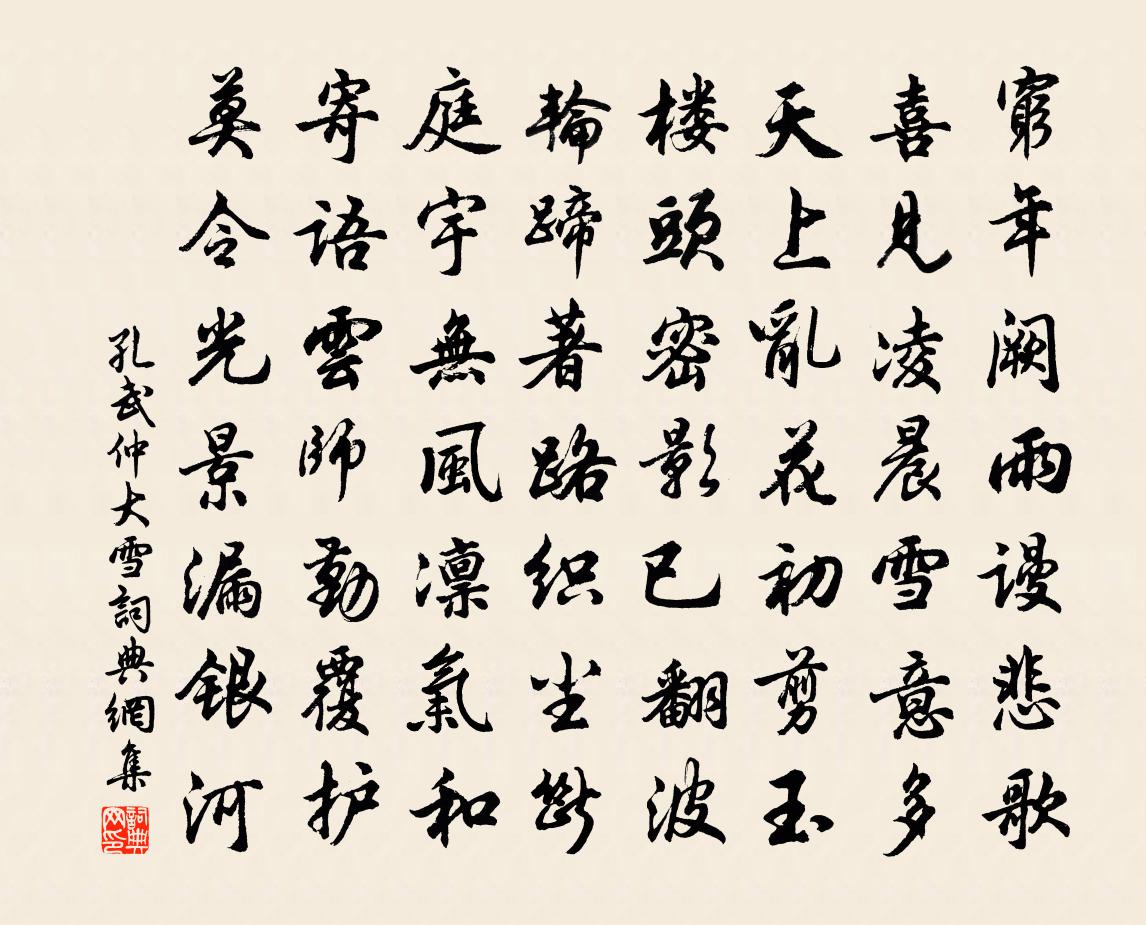 窮年闕雨謾悲歌
喜見凌晨雪意多
天上亂花初剪玉
楼頭密影已翻波
輪蹄著路织尘斷
庭宇無風凛氣和
寄語雲師勤覆护
莫令光景漏銀河
孔武仲大雪詞典網集
詞典网印